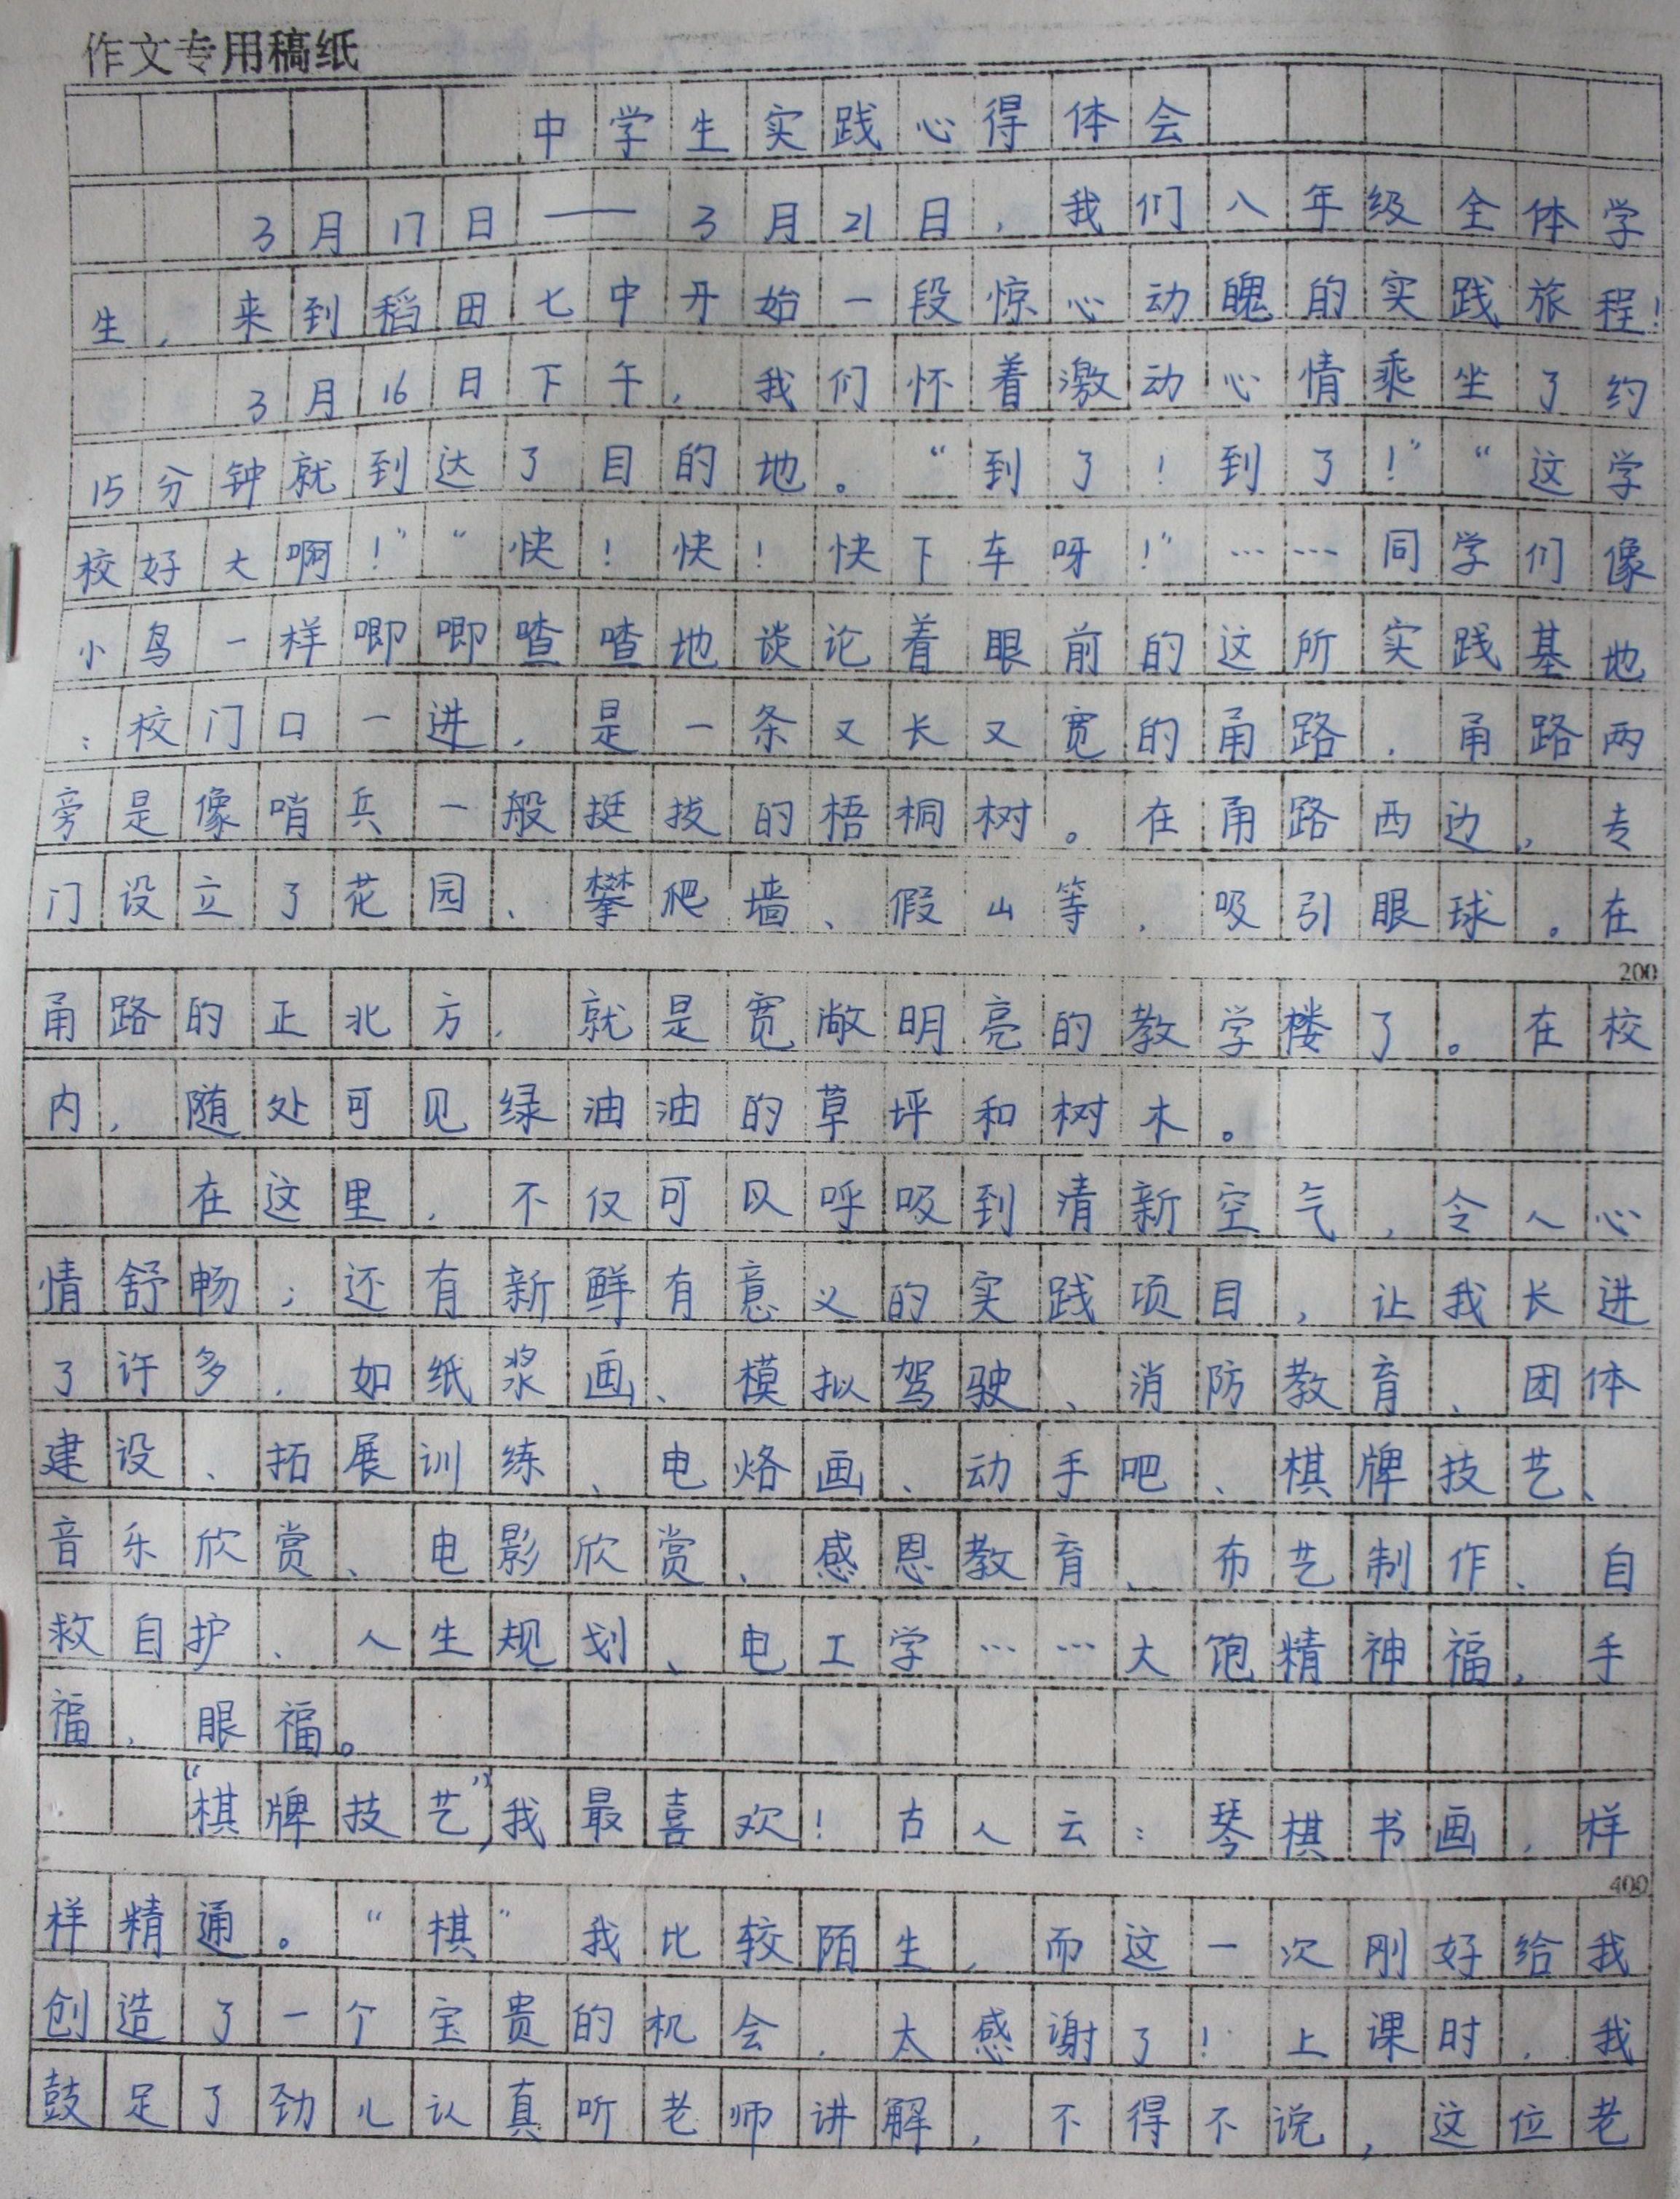 作文专用稿纸
中学生实践心得体会
3月17日——3月21日，我们八年级全体学
生，来到稻田七中开始一段惊心动魄的实践旅程！
3月16日下午，我们怀着激动心情乘坐了约
15分钟就到达了目的地。“到了！到了！”“这学
校好大啊！”“快！快！快下车呀！”……同学们像
小鸟一样唧唧喳喳地谈论着眼前的这所实践基地
：校门口一进，是一条又长又宽的甬路，甬路两
旁是像哨兵一般挺拔的梧桐树。在甬路西边，专
门设立了花园、攀爬墙、假山等，吸引眼球。在
200
甬路的正北方，就是宽敞明亮的教学楼了。在校
内，随处可见绿油油的草坪和树木。
在这里，不仅可以呼吸到清新空气，令人心
情舒畅；还有新鲜有意义的实践项目，让我长进
了许多，如纸浆画、模拟驾驶、消防教育、团体
建设、拓展训练、电烙画、动手吧、棋牌技艺、
音乐欣赏、电影欣赏、感恩教育、布艺制作、自
救自护、人生规划、电工学……大饱精神福，手
福，眼福。
“棋牌技艺”，我最喜欢！古人云：琴棋书画，样
400
样精通。“棋”我比较陌生，而这一次刚好给我
创造了一个宝贵的机会，太感谢了！上课时，我
鼓足了劲儿认真听老师讲解，不得不说，这位老